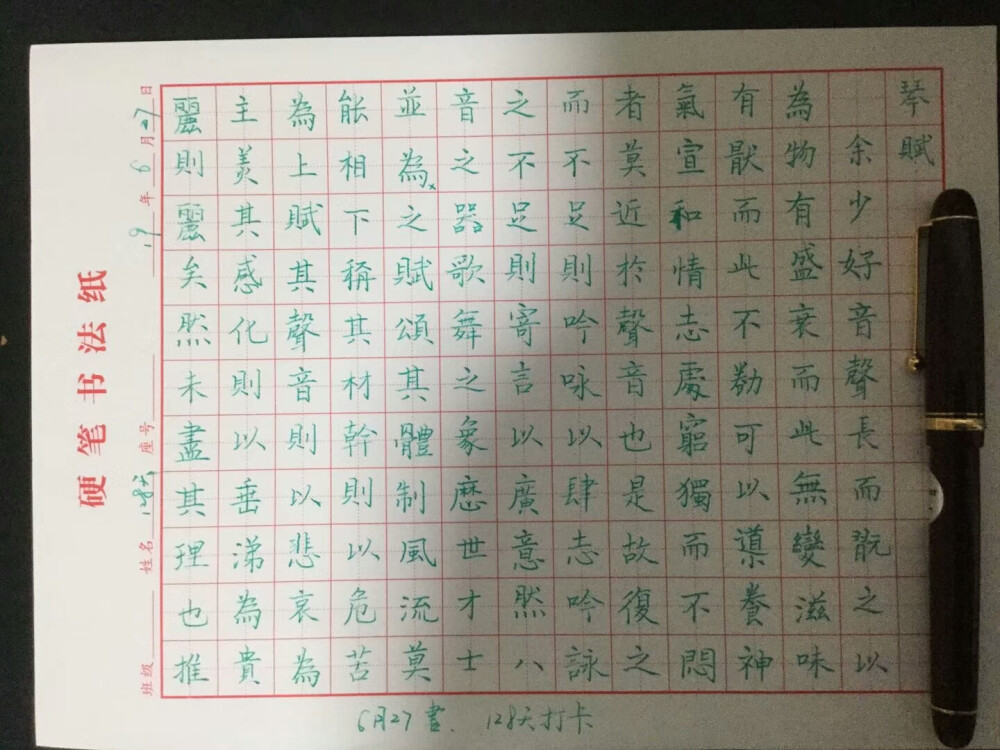 琴賦
余少好音聲長而翫之以
為物有盛衰而此無變滋味
有厭而此不勌可以導養神
氣宣和情志處窮獨而不悶
者莫近於聲音也是故復之
而不足則吟咏以肆志吟詠
之不足則寄言以廣意然八
音之器歌舞之象厯世才士
並為之賦頌其體制風流莫
能相下稱其材幹則以危苦
為上賦其聲音則以悲哀為
主美其感化則以垂涕為貴
麗則麗矣然未盡其理也推
班级 姓名 128天 座号 19年6月27日
硬笔书法纸
6月27書、128天打卡